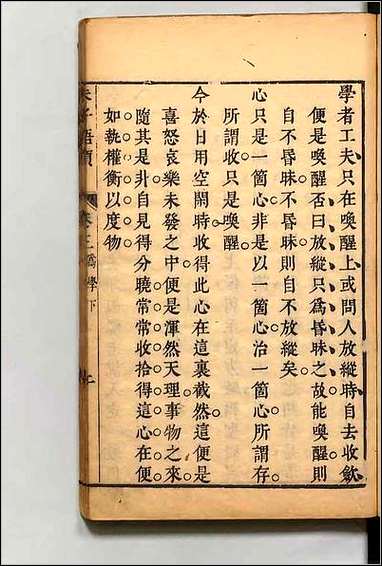 學者工夫只在喚醒上或問人放縱時自去收斂
便是喚醒否曰放縱只爲昏昧之故能喚醒則
自不昏昧不昏昧則自不放縱矣
心只是一箇心非是以一箇心治一箇心所謂存
所謂收只是喚醒
今於日用空閒時收得此心在這裏截然這便是
喜怒哀樂未發之中便是渾然天理事物之來
隨其是非自見得分曉常常收拾得這心在便
如執權衡以度物
朱子語類 卷三 爲學下